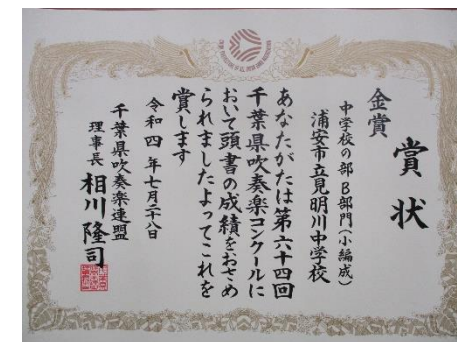 賞状
金賞
中学校の部 B部門(小編成)
浦安市立見明川中学校
あなたがたは第六十四回
千葉県吹奏楽コンクールに
おいて頭書の成績をおさめ
られましたよってこれを
賞します
令和四年七月二八日
千葉県吹奏楽連盟
理事長 相川隆司